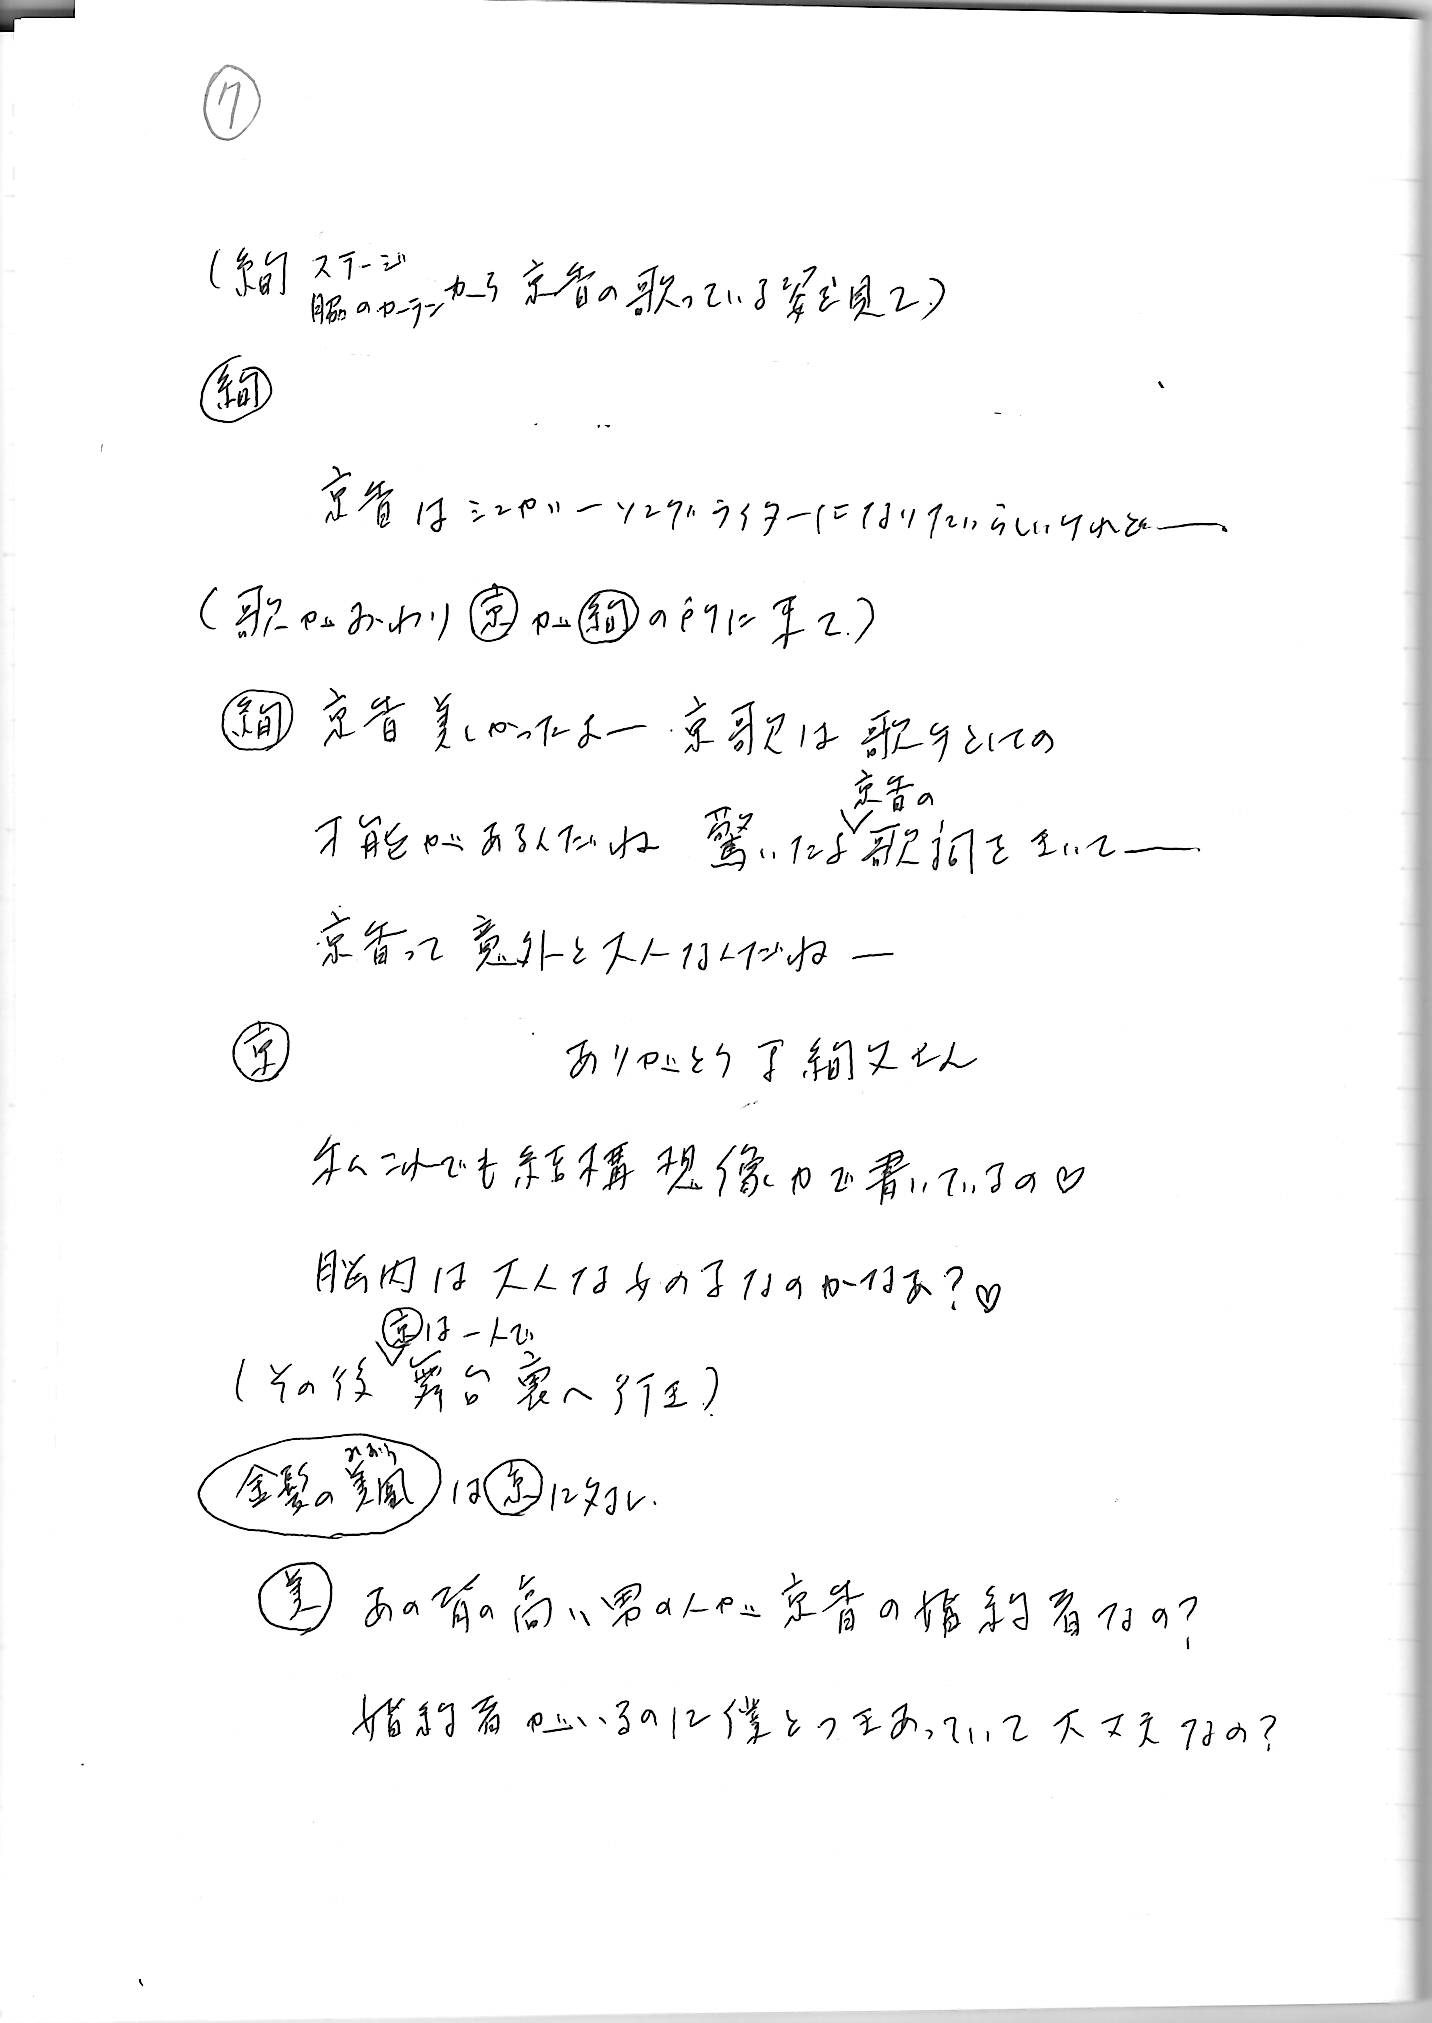 7
(絢 ステージ脇のカーテンから京香の歌っている姿を見て)
絢
京香はシンガーソングライターになりたいらしいけれど―
(歌がおわり京が絢の所に来て)
絢 京香美しかったよー 京歌は歌手としての
京香の
才能があるんだね 驚いたよ歌詞をきいて―
京香って意外と大人なんだねー
京 ありがとう 絢又さん
私これでも結構想像力で書いているの♡
脳内は大人な女の子なのかなあ?♡
京は一人で
(その後舞台裏へ行き)
みおう
金髪の美凰は京に対し
美 あの背の高い男の人が京香の婚約者なの?
婚約者がいるのに僕とつきあっていて大丈夫なの?